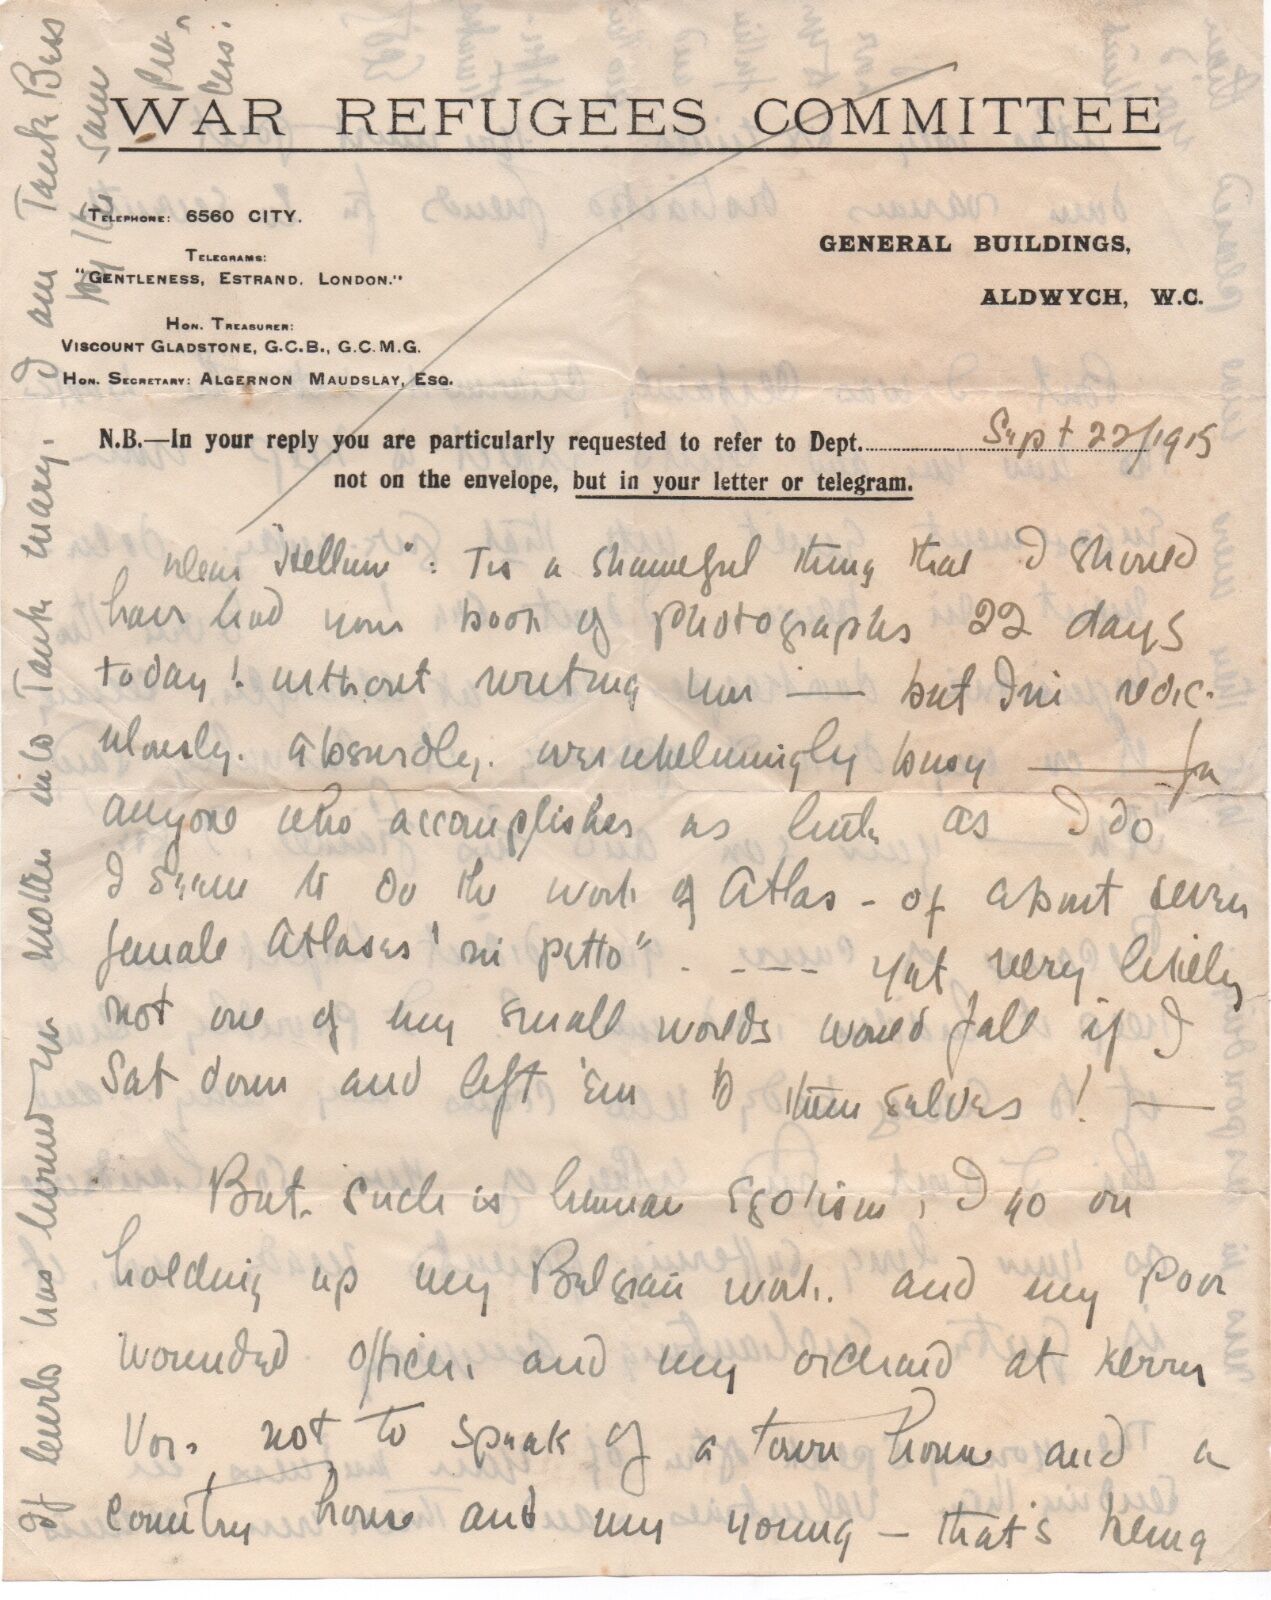 WAR REFUGEES COMMITTEE
TELEPHONE: 6560 CITY.
TELEGRAMS:
"GENTLENESS, ESTRAND, LONDON."
HON. TREASURER:
VISCOUNT GLADSTONE, G.C.B., G.C.M.G.
HON. SECRETARY: ALGERNON MAUDSLAY, ESQ.
GENERAL BUILDINGS,
ALDWYCH, W.C.
N.B.—In your reply you are particularly requested to refer to Dept. Sept 22/1915
not on the envelope, but in your letter or telegram.
Dear : Tis a shameful thing that I should
have had your book of photographs 22 days
today! without writing you — but I'm redic-
ulously. absurdly. overwhelmingly busy — for
anyone who accomplishes as little as I do
I seem to do the work of Atlas - of about seven
female Atlases "in petto" . - - - - yet very likely
not one of my small worlds would fall if I
sat down and left 'em to themselves! —
But. such is human egotism, I go on
holding up my Belgian work. and my poor
wounded officers and my orchard at Kerry
Vor. not to speak of a town house and a
country house and my young — that's being
mother into Tank Mary. I am Tank Bess
by the same
Pro-
cess.